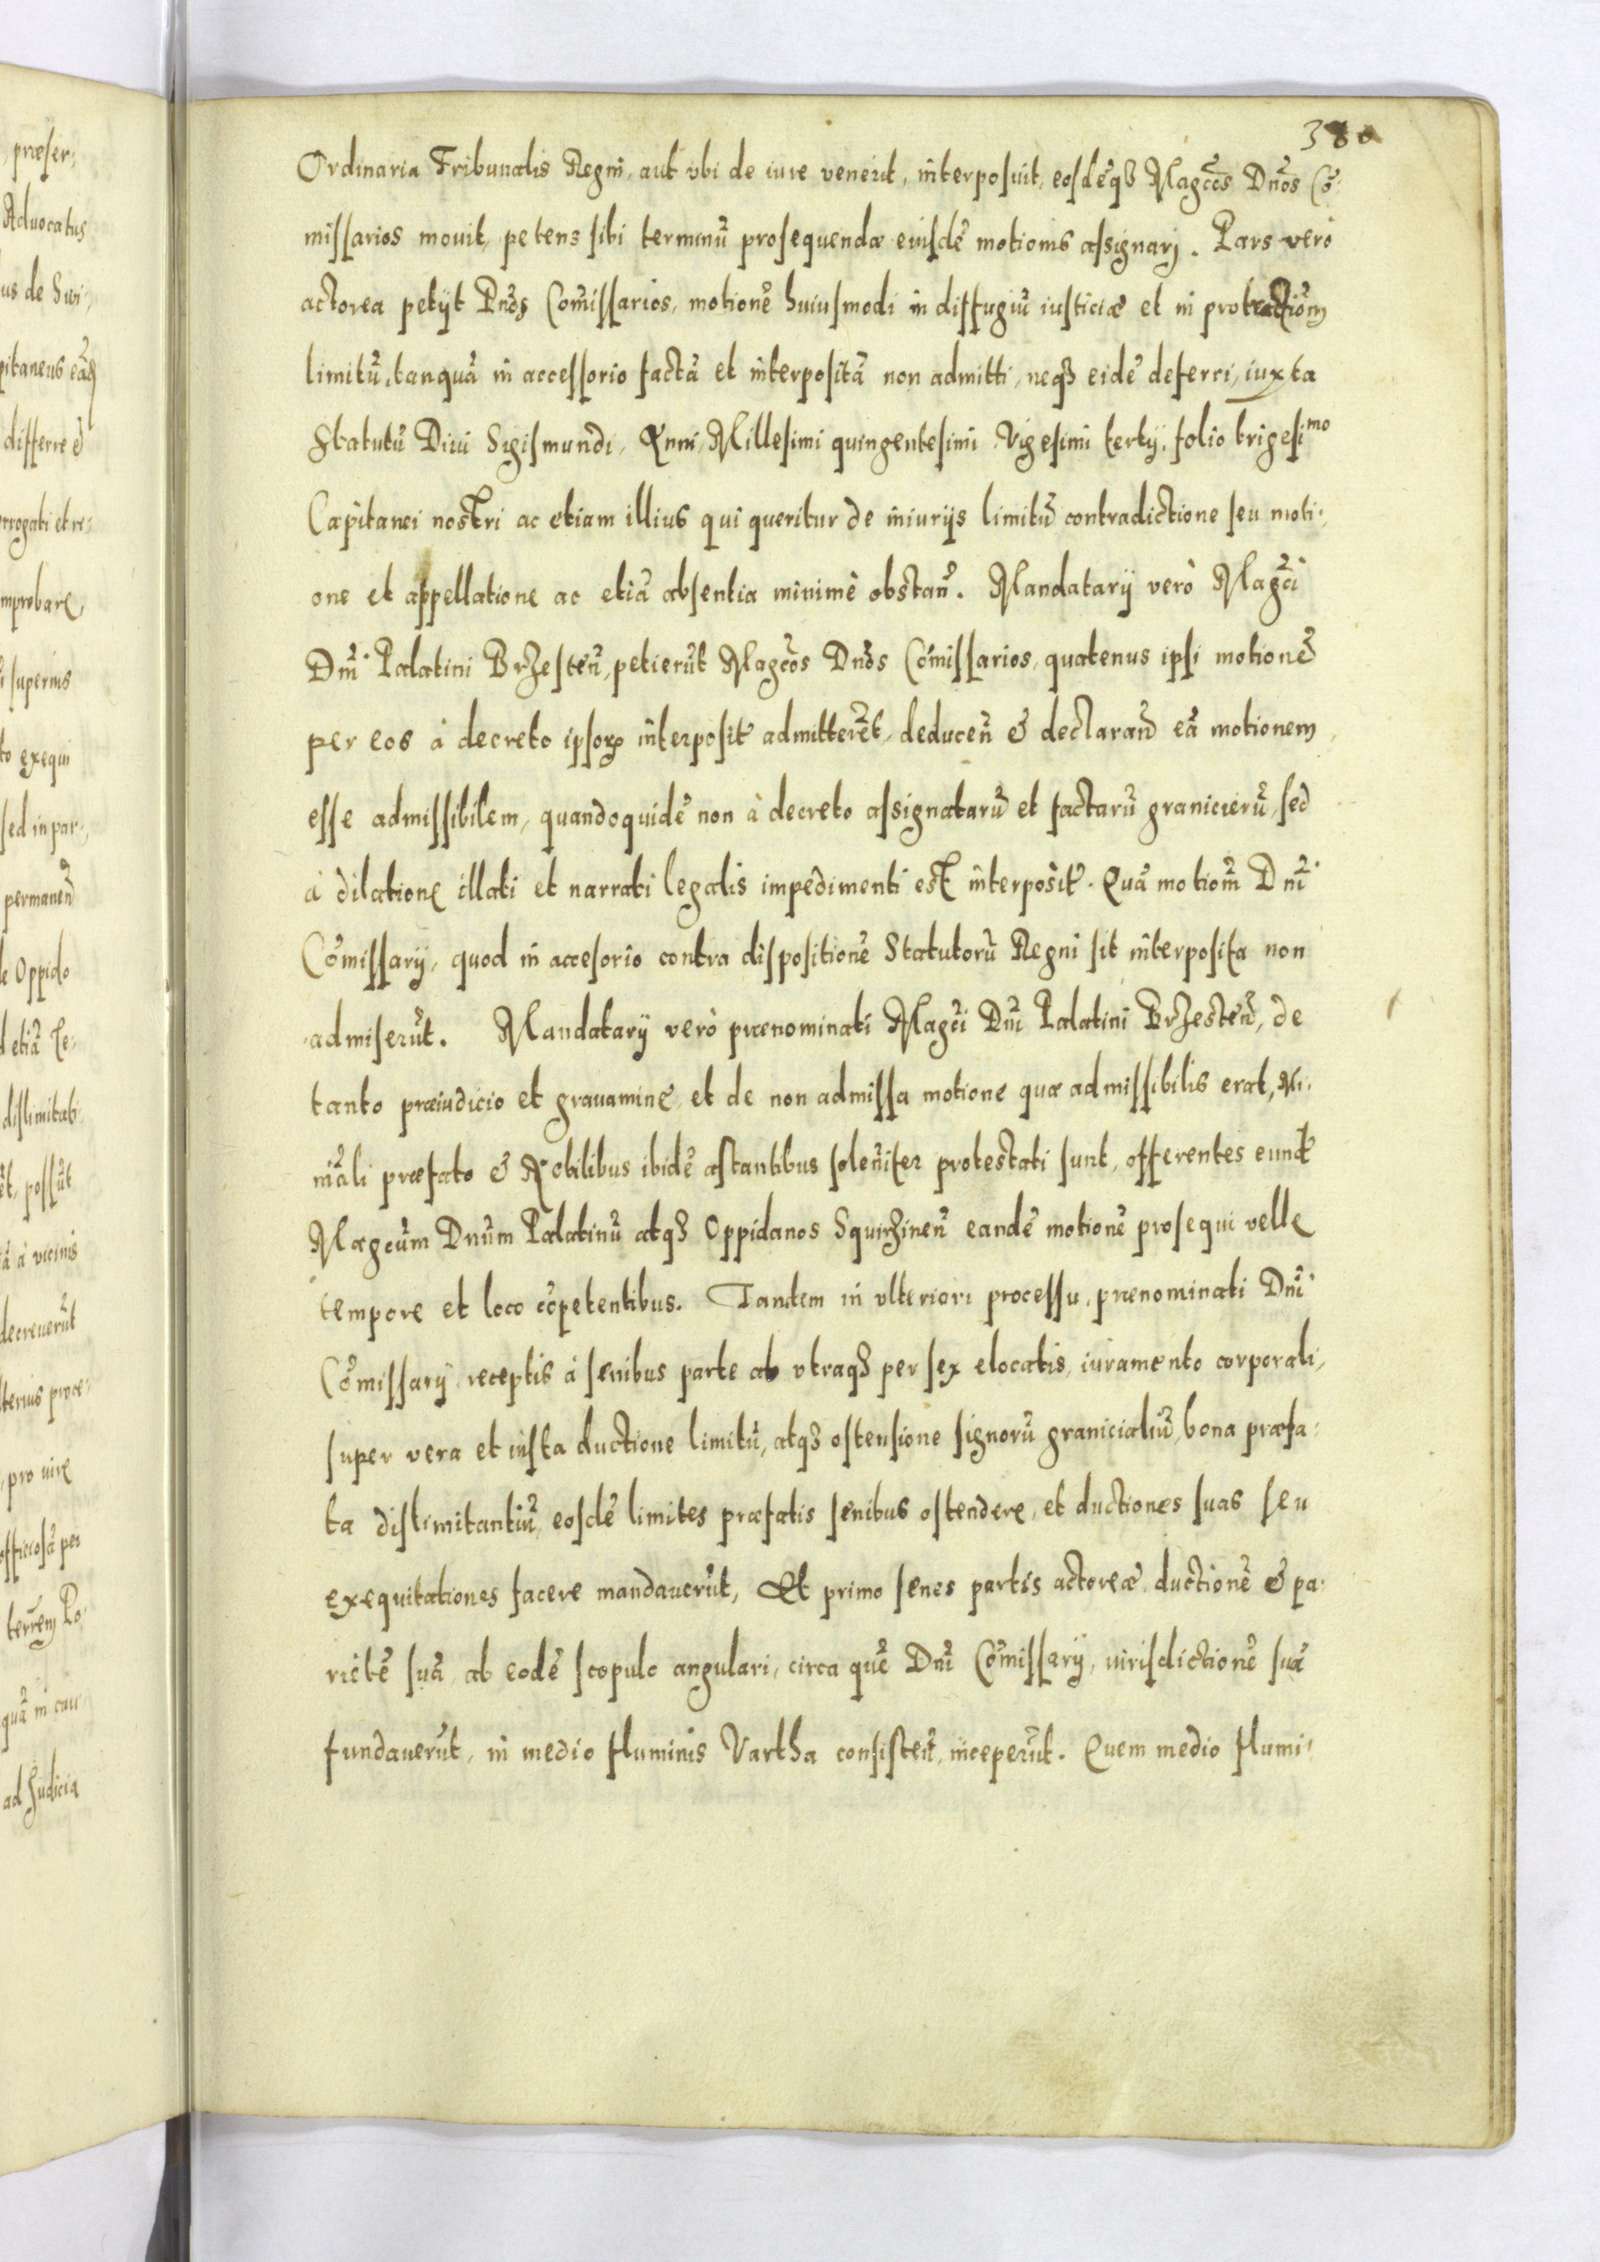 380
Ordinaria Tribunalis Regni, aut vbi de iure venerit, interposuit, eosdēqз Magc̃os Dnõs Cō-
missarios mouit, petens sibi terminū prosequendæ eiusdē motionis assignarj. Pars verò
actorea petijt Dnõs Com̃issarios, motionē huiusmodi in diffugiū iusticiæ et in protractiom̃
limitū, tanquā in accessorio factā et interpositā non admitti, neqз eidē deferri, iuxta
Statutū Diui Sigismundi, Anni Millesimi quingentesimi Vigesimi tertij, folio trigesimo
Capitanei nostri ac etiam illius qui queritur de iniurijs limitū contradictione seu moti-
one et appellatione ac etiā absentia minimè obstañ. Mandatarij verò Magc̃i
Dnĩ Palatini Brzesteñ, petierūt Magc̃os Dnõs Com̃issarios, quatenus ipsi motionē
per eos à decreto ipsoꝝ interposit̃ admitterēt, deduceñ & declarañ eā motionem
esse admissibilem, quandoquidē non à decreto assignatarū et factarū granicierū, sed
à dilatione illati et narrati legalis impedimenti est interposit̃. Quā motiom̃ Dnĩ
Com̃issarij, quod in accesorio contra dispositionē Statutorū Regni sit interposita non
admiserūt. Mandatarij verò prænominati Magc̃i Dnĩ Palatini Brzesteñ, de
tanto præiudicio et grauamine, et de non admissa motione quæ admissibilis erat, Mi-
nr̃ali præfato & Nobilibus ibidē astantibus solen̄iter protestati sunt, offerentes eund̃
Magcũm Dnũm Palatinū atqз Oppidanos Squirzineñ eandē motionē prosequi velle
tempore et loco cōpetentibus. Tandem in vlteriori processu, prænominati Dnĩ
Com̃issarij, receptis à senibus parte ab vtraqз per sex elocatis, iuramento corporali,
super vera et iusta ductione limitū, atqз ostensione signorū granicialiū, bona præfa-
ta dislimitantiū, eosdē limites præfatis senibus ostendere, et ductiones suas seu
exequitationes facere mandauerūt, Et primo senes partis actoreæ, ductionē & pa-
rietē suā ab eodē scopulo angulari, circa quē Dnĩ Com̃issarij, iurisdictionē suā
fundauerūt, in medio fluminis Vartha consisteñ, inceperūt. Quem medio flumi-